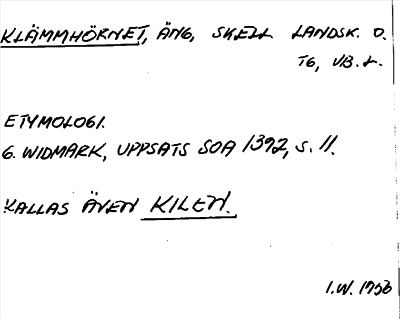 KLÄMMHÖRNET, ÄNG, SKELL LANDSK. O.
TG, VB. L.
ETYMOLOGI.
G. WIDMARK, UPPSATS SOA 1392, S. 11.
KALLAS ÄVEN KILEN.
I.W. 1956